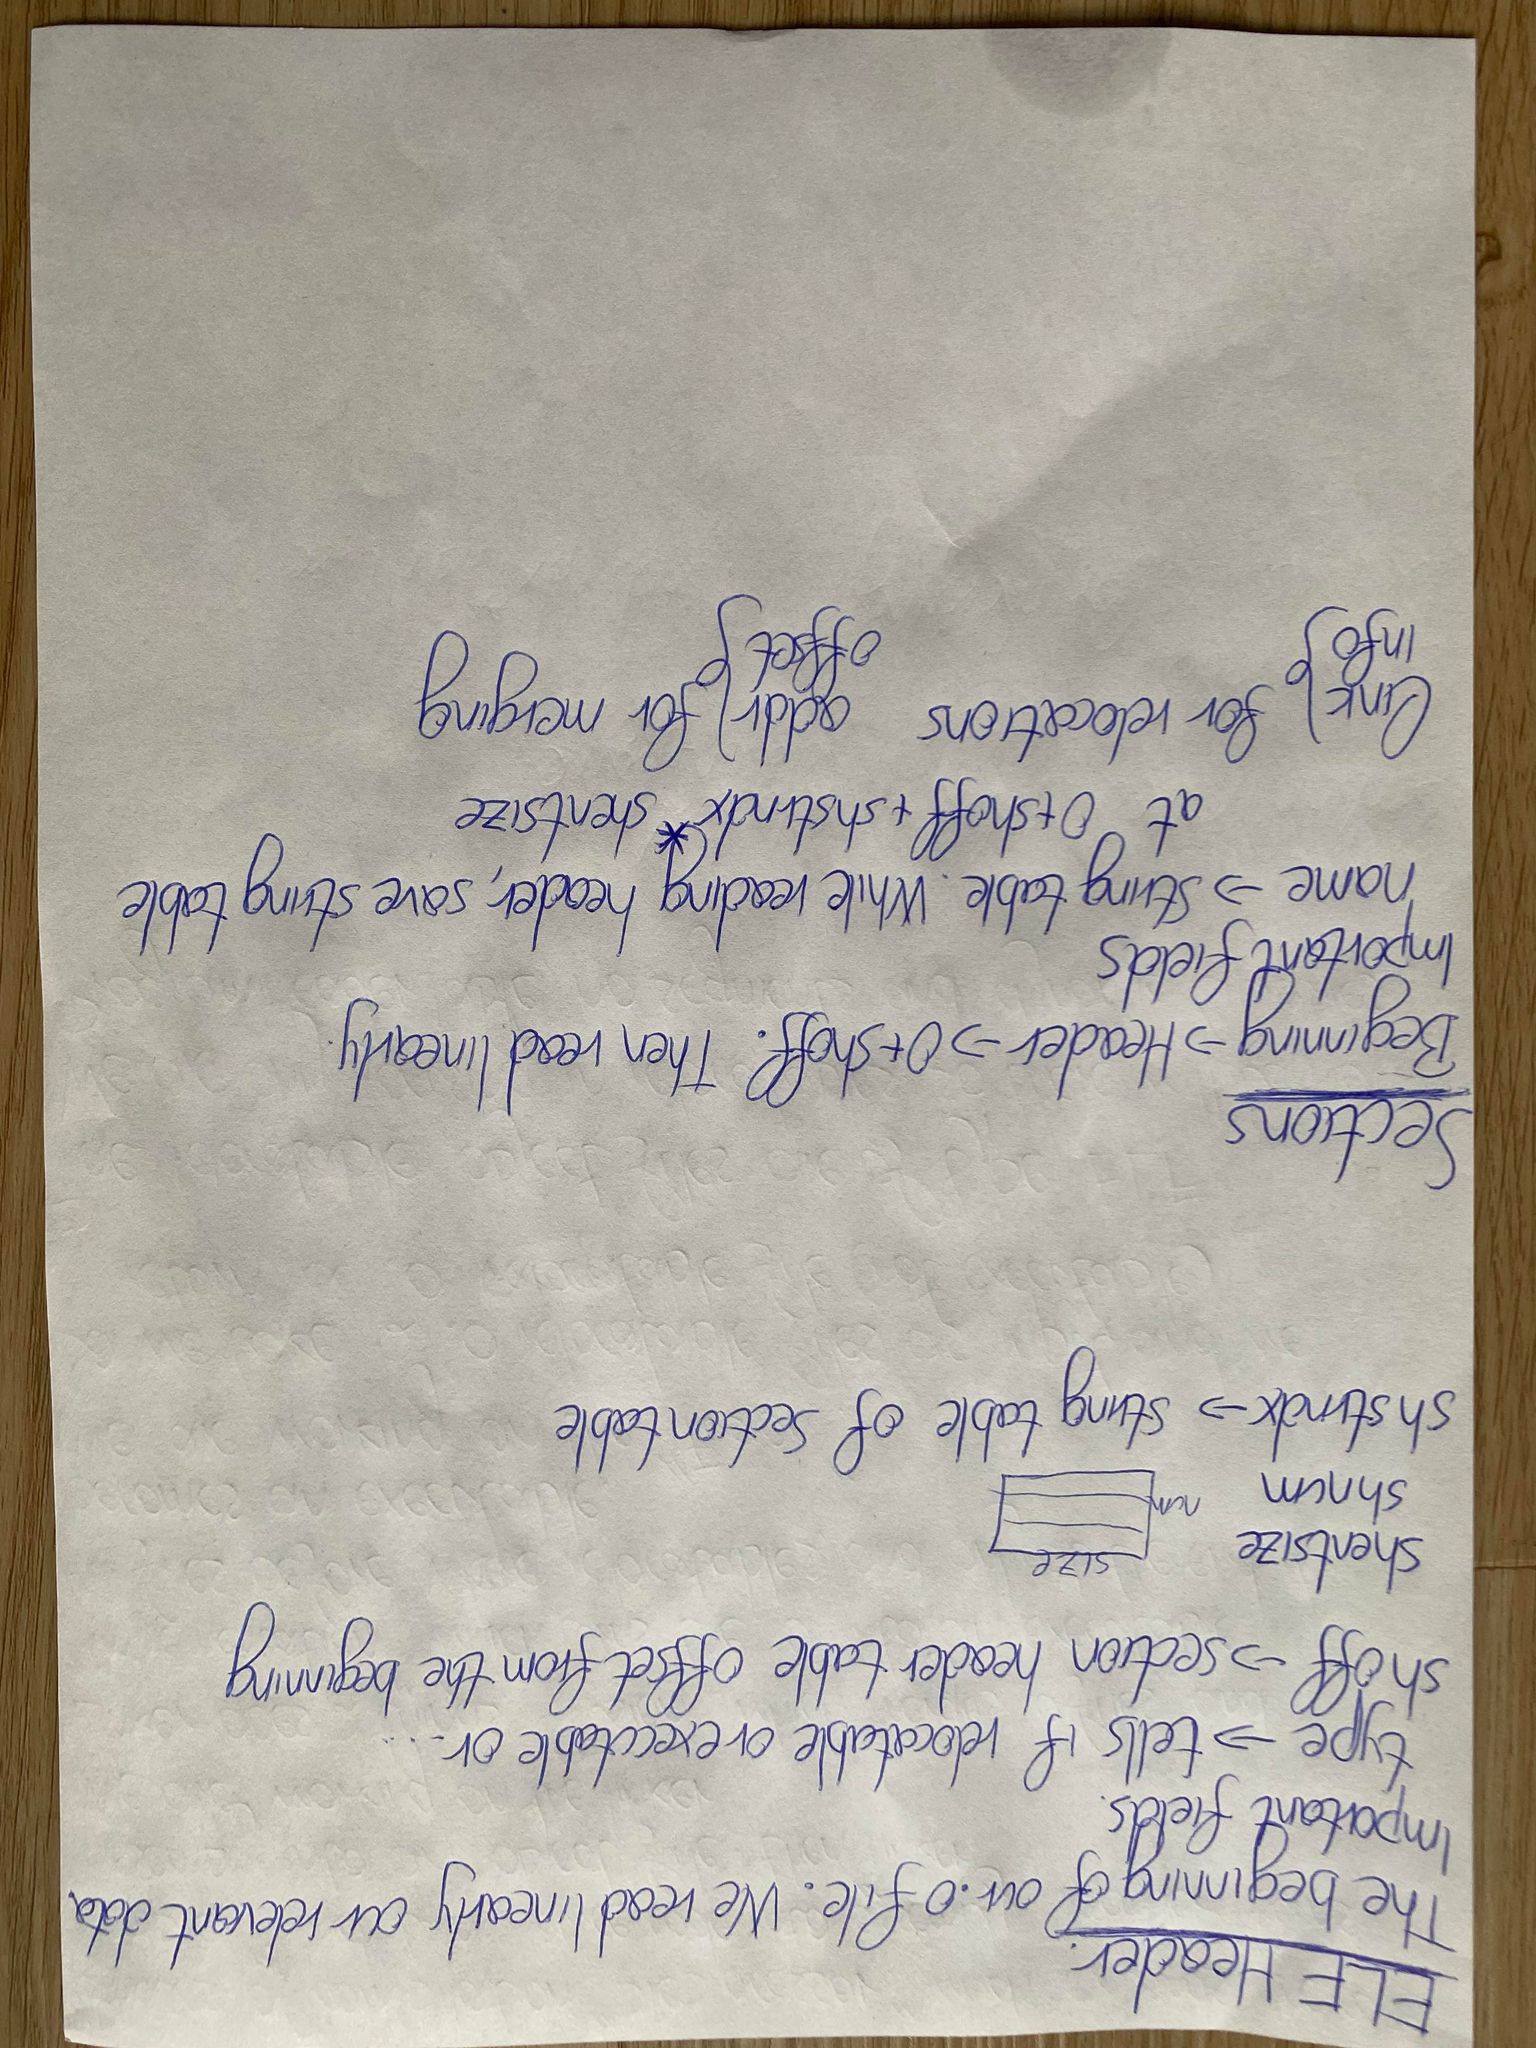 ELF Header.
The beginning of our .o file. We read linearly our relevant data.
Important fields.
type → tells if relocatable or executable or...
shoff → section header table offset from the beginning
size
shentsize
shnum
num
shstrndx → string table of section table
Sections
Beginning → Header → 0+shoff. Then read linearly.
Important fields
name → String table. While reading header, save string table
at 0+shoff+shstrndx*shentsize
link } for relocations addr } for merging
info offset